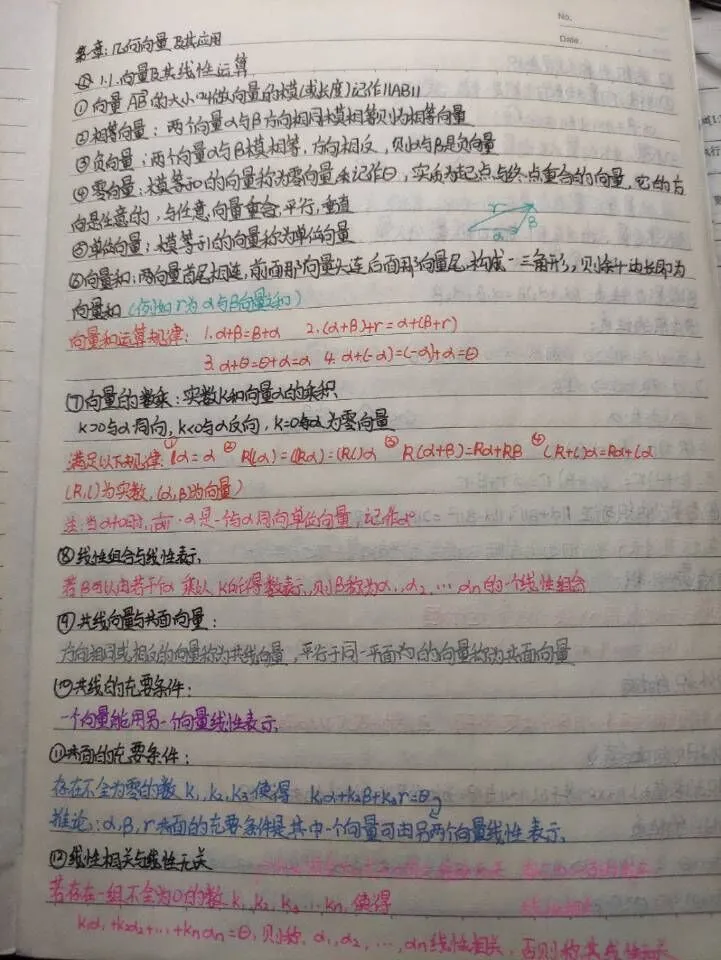 No.
Date
第一章:几何向量及其应用
§1.1.向量及其线性运算
①向量AB的大小叫做向量的模(或长度)记作||AB||
②相等向量:两个向量α与β方向相同模相等则为相等向量
③负向量:两个向量α与β模相等,方向相反,则α与β是负向量
④零向量:模等于0的向量称为零向量记作θ,实质为起点与终点重合的向量,它的方
向是任意的,与任意向量重合,平行,垂直
⑤单位向量:模等于1的向量称为单位向量
r α β
⑥向量和:两向量首尾相连,前面那向量头连后面那向量尾,构成一三角形,则余下边长即为
向量和(例如r为α与β向量之和)
向量和运算规律:1.α+β=β+α 2.(α+β)+r=α+(β+r)
3.α+θ=θ+α=α 4.α+(-α)=(-α)+α=θ
⑦向量的数乘:实数K和向量α的乘积
K>0与α同向,K<0与α反向,K=0与α为零向量
满足以下规律:①1α=α ②R(lα)=l(Rα)=(Rl)α ③R(α+β)=Rα+Rβ ④(R+l)α=Rα+lα
(R,l)为实数,(α,β为向量)
注:当α≠0时, ·α是一与α同向单位向量,记作α⁰
⑧线性组合与线性表示
若β可以由若干个α乘以K所得数表示,则β称为α₁,α₂…αn的一个线性组合
⑨共线向量与共面向量:
方向相同或相反的向量称为共线向量,平行于同一平面内的向量称为共面向量
⑩共线的充要条件:
一个向量能用另一个向量线性表示
⑪共面的充要条件:
存在不全为零的数K₁,K₂,K₃使得 K₁α+K₂β+K₃r=θ
推论:α,β,r共面的充要条件是其中一个向量可由另两个向量线性表示
⑫线性相关与线性无关
若存在一组不全为0的数K₁,K₂,K₃…Kn,使得
K₁α₁+K₂α₂+…+Knαn=θ,则称,α₁,α₂,…,αn线性相关,否则称其线性无关